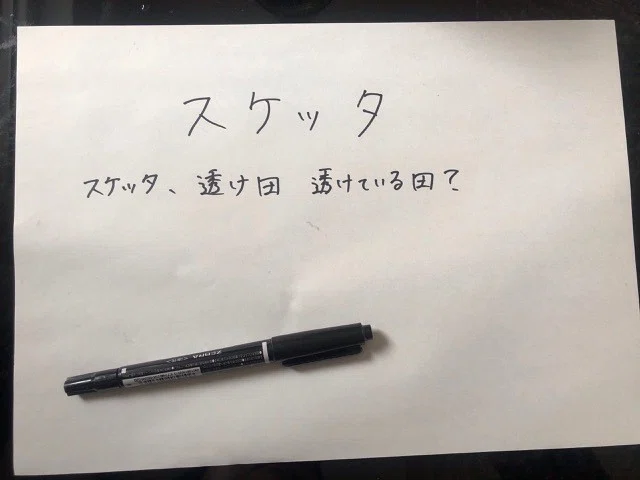 スケッタ
スケッタ、透け田 透けている田?
ZEBRA